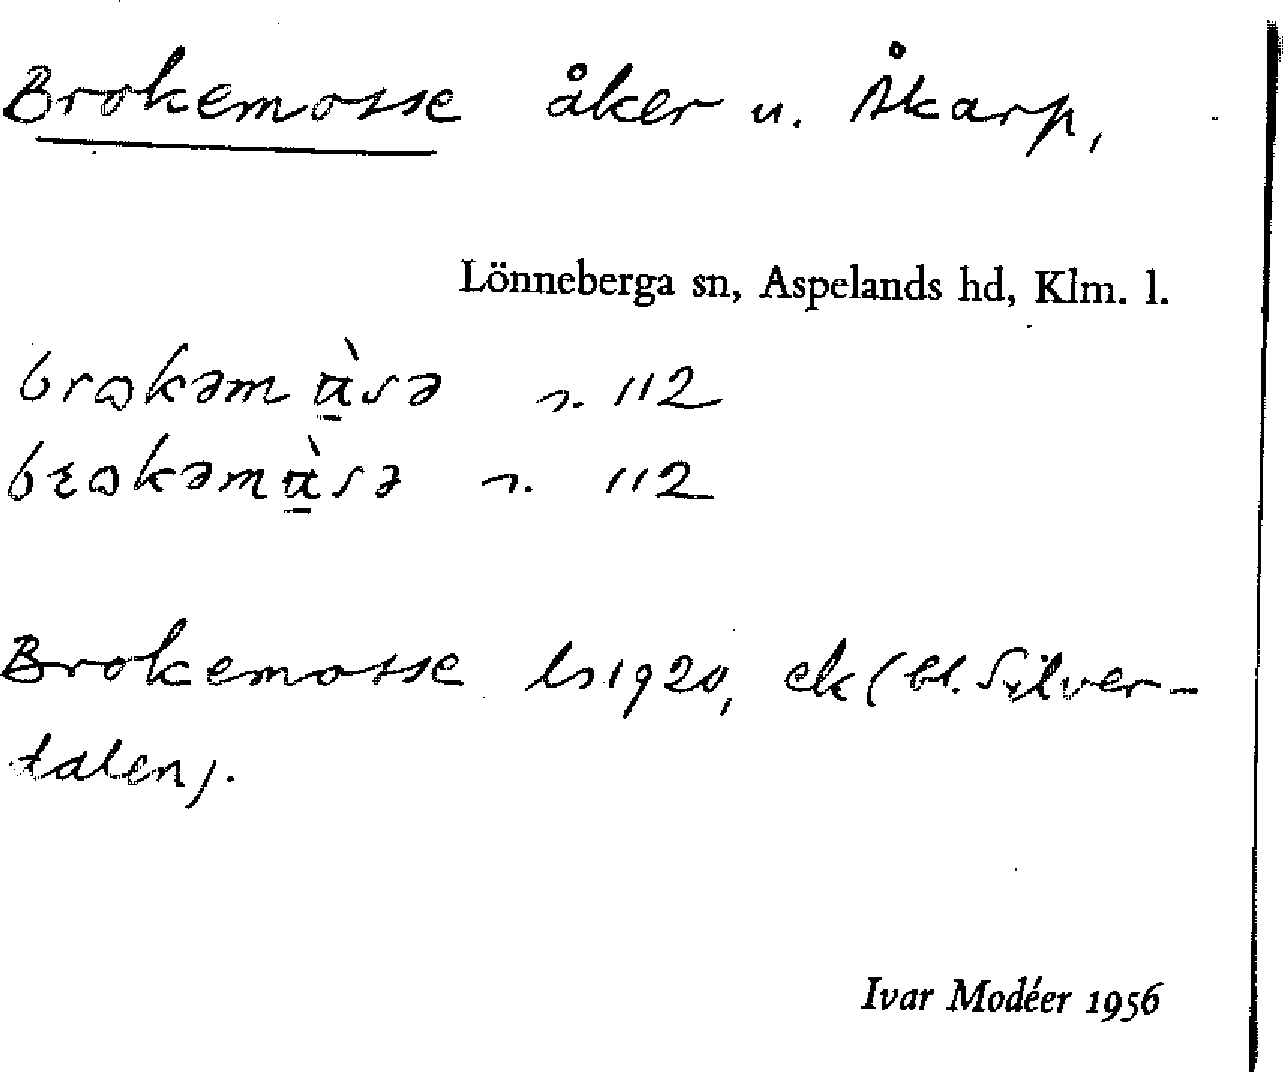 Brokemosse åker u. Åkarp,
Lönneberga sn, Aspelands hd, Klm. l.
112
112
Brokemosse ls 1920, ek (bl. Silver-
dalen).
Ivar Modéer 1956